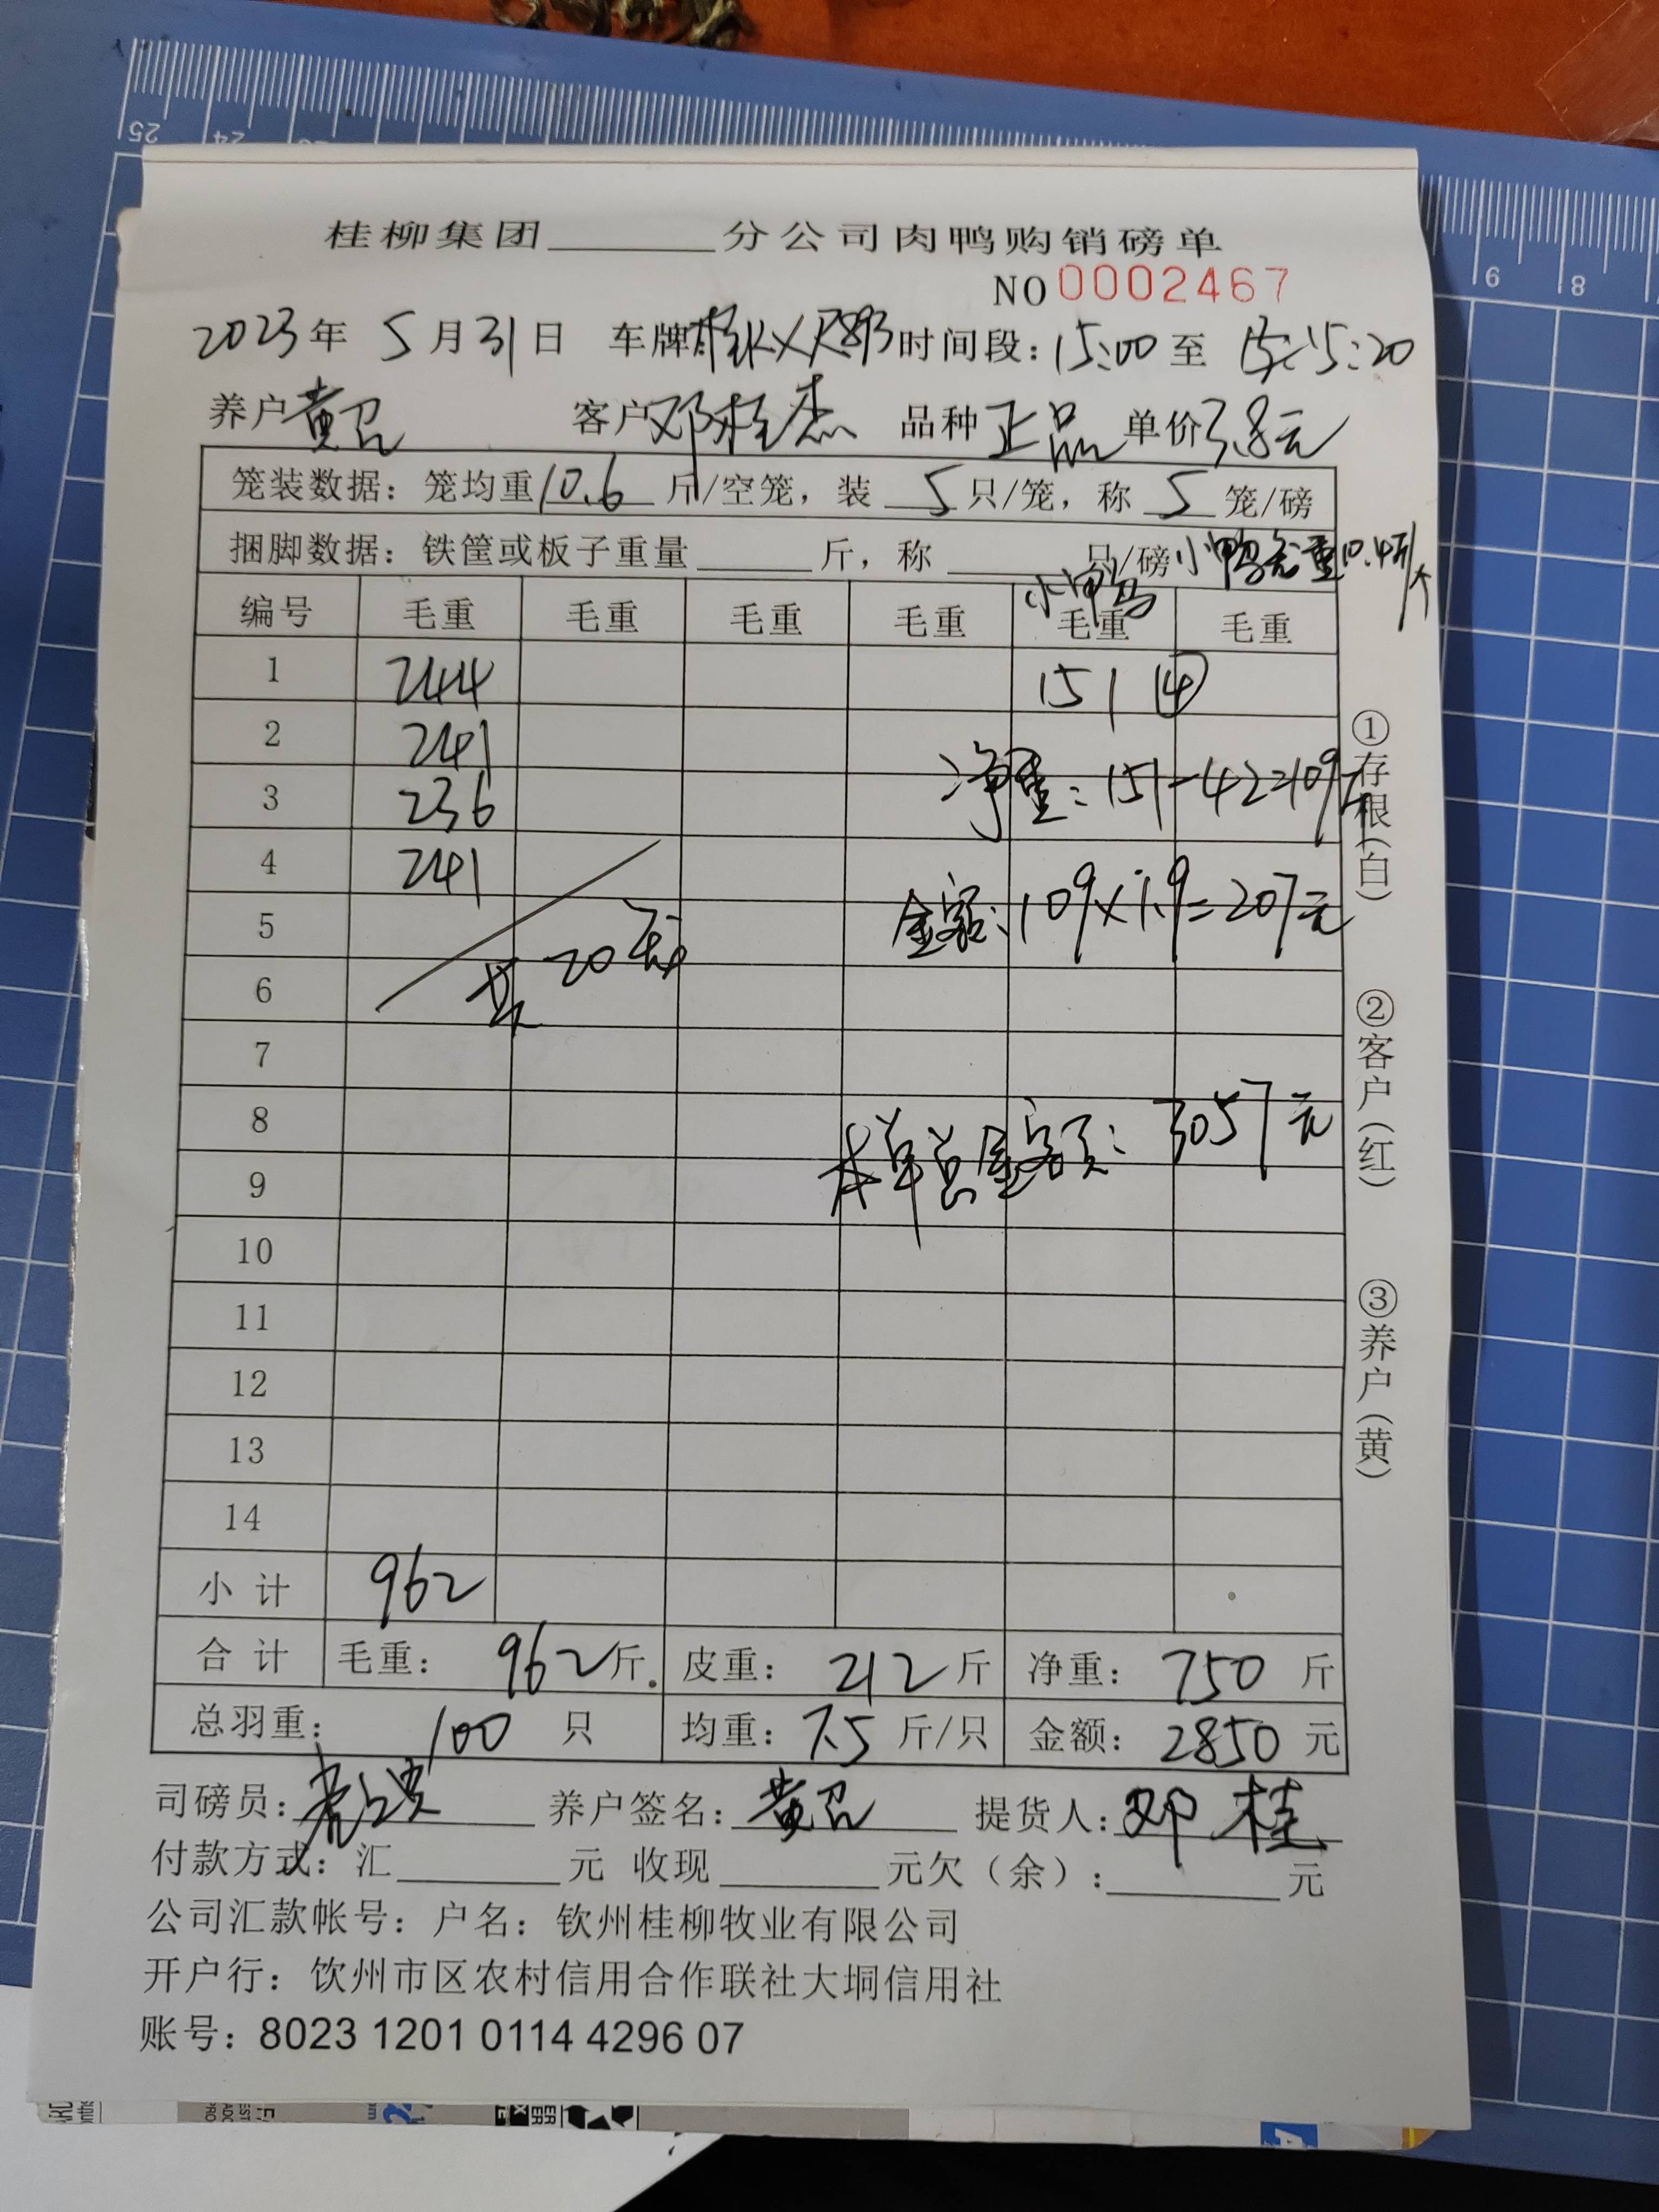 桂柳集团______分公司肉鸭购销磅单
NO 0002467
2023年 5月31日 车牌 时间段：15:00至 15:20
养户 黄召 客户 邓桂杰 品种 正品 单价 3.8元
笼装数据：笼均重 10.6 斤/空笼，装 5 只/笼，称 5 笼/磅
捆脚数据：铁筐或板子重量______斤，称______只/磅 小鸭 重10.4斤/个
小鸭
编号 毛重 毛重 毛重 毛重 毛重 毛重
1 244 151 ④
2 241
净重：151-42=109斤
3 236
4 241
金额：109×1.9=207元
5
共20笼
6
7
8
本单总金额：3057元
9
10
11
12
13
14
小计 962
合计 毛重：962斤 皮重：212斤 净重：750斤
总羽重：100只 均重：7.5斤/只 金额：2850元
①存根（白）
②客户（红）
③养户（黄）
司磅员： 养户签名：黄召 提货人：邓桂
付款方式：汇______元 收现______元欠（余）：______元
公司汇款帐号：户名：钦州桂柳牧业有限公司
开户行：钦州市区农村信用合作联社大垌信用社
账号：8023 1201 0114 4296 07
25 24
6 8